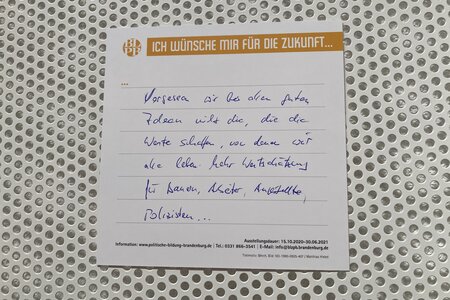 BLPB
ICH WÜNSCHE MIR FÜR DIE ZUKUNFT...
...
Vergessen wir bei allen guten
Ideen nicht die, die die
Werte schaffen, von denen wir
alle leben. Mehr Wertschätzung
für Bauern, Arbeiter, Angestellte,
Polizisten...
Ausstellungsdauer: 15.10.2020-30.06.2021
Information: www.politische-bildung-brandenburg.de | Tel.: 0331 866-3541 | E-Mail: info@blzpb.brandenburg.de